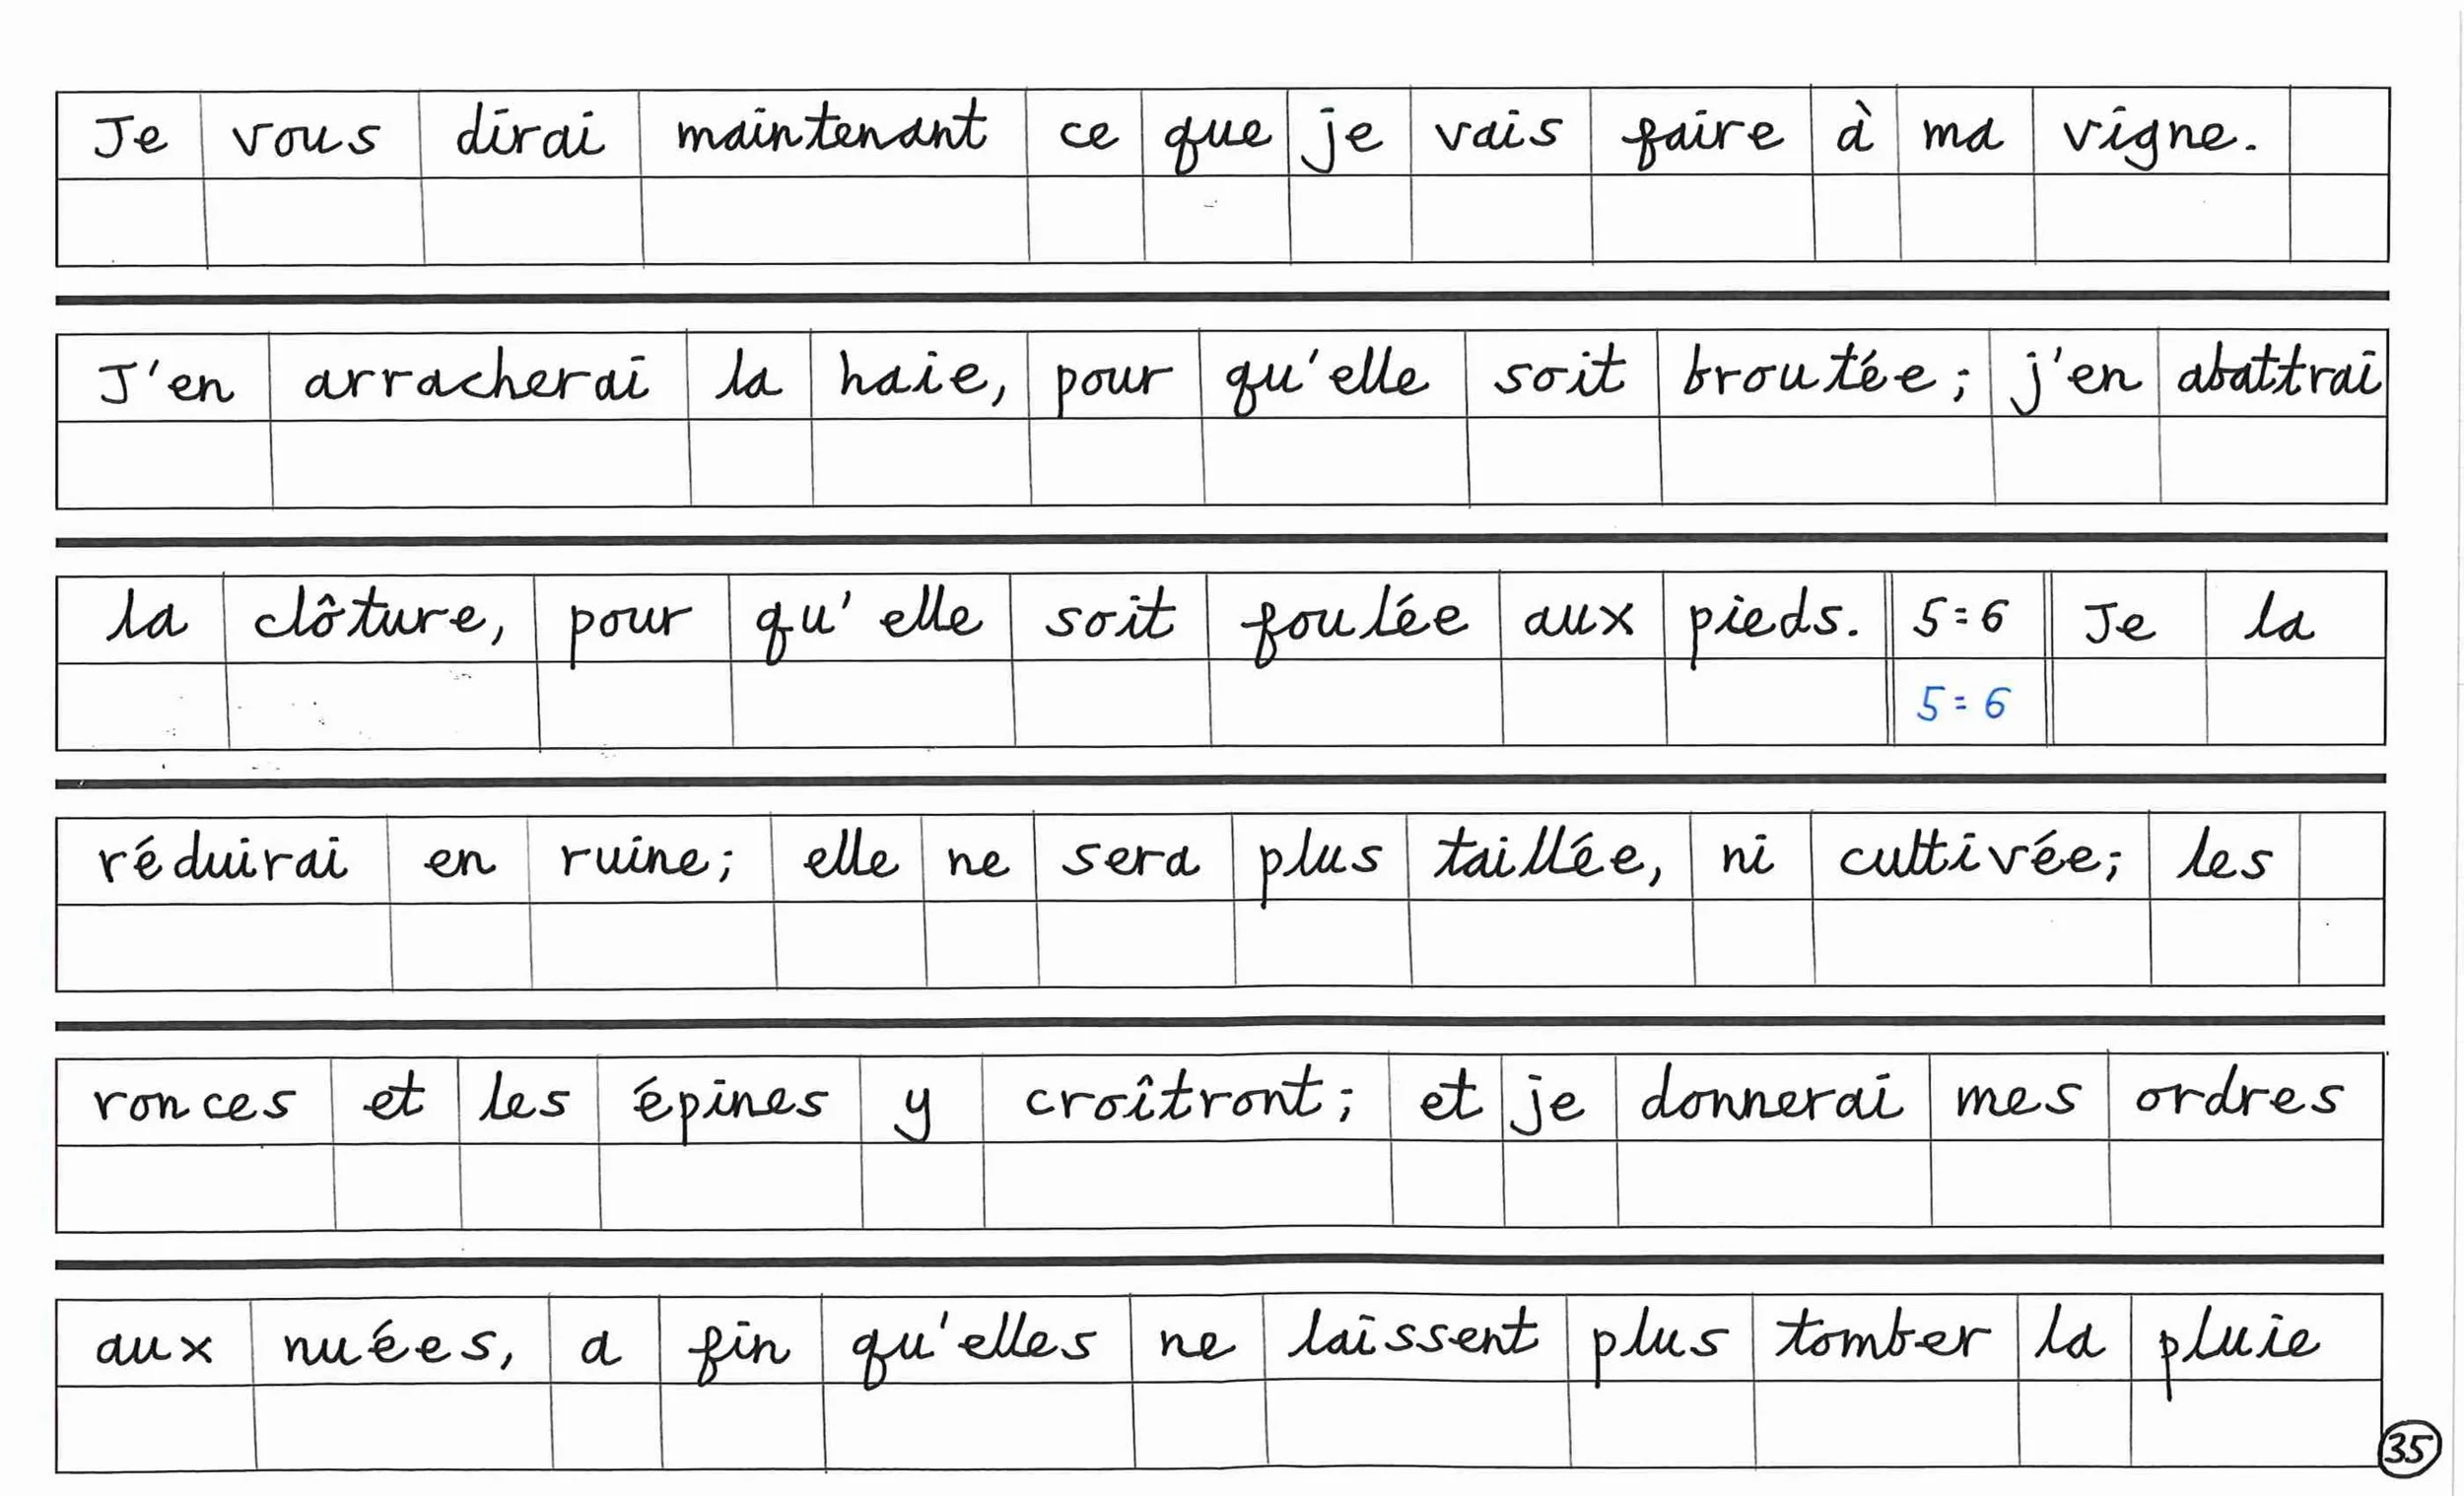 Je vous dirai maintenant ce que je vais faire à ma vigne.
J'en arracherai la haie, pour qu'elle soit broutée; j'en abattrai
la clôture, pour qu'elle soit foulée aux pieds. 5=6 Je la
5=6
réduirai en ruine; elle ne sera plus taillée, ni cultivée; les
ronces et les épines y croîtront; et je donnerai mes ordres
aux nuées, a fin qu'elles ne laissent plus tomber la pluie
35